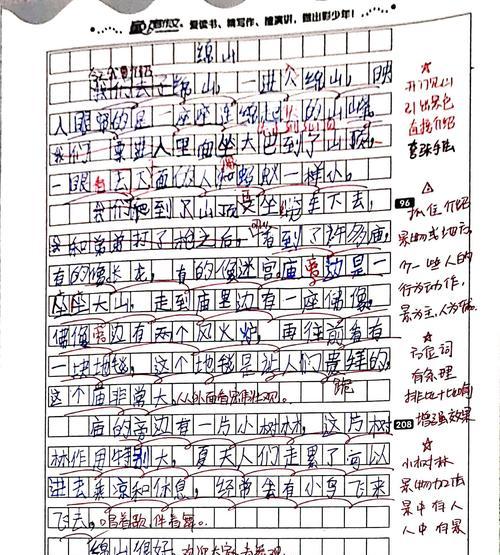 爱读书、练写作、擅演讲，做出彩少年！
绵山
我们去了绵山，一进入绵山，映
入眼帘的是一座座连绵的山峰，
我们要进入里面坐大巴到了山顶，
一眼看去下面的人和蚂蚁一样小。
我们到了山顶要坐下去，
我和弟弟打了枪之后，看到了许多庙，
有的像长龙，有的像迷宫，庙旁边是一
座座大山，走到庙里边有一座佛像，
佛像旁边有两个风火炉，再往前看有
一块地毯，这个地毯是让人们跪拜的，
跪
这个庙非常大，从外面看宏伟壮观。
庙的旁边有一片小树林，这片树
林作用特别大，夏天人们走累了可以
进去乘凉和休息，经常会有小鸟飞来
飞去，唱着歌，伴着舞。
绵山很好，
开门见山
引出景色
直接介绍
夸张手法
96
抓住介绍
景物或地方
个一些人的
行为动作，
景为主，人为辅。
方位词
有条理
排比+比喻
208
增强效果
小树林
景物加法
景中有人
人中有景